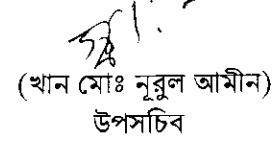 (খান মোঃ নূরুল আমীন)
উপসচিব